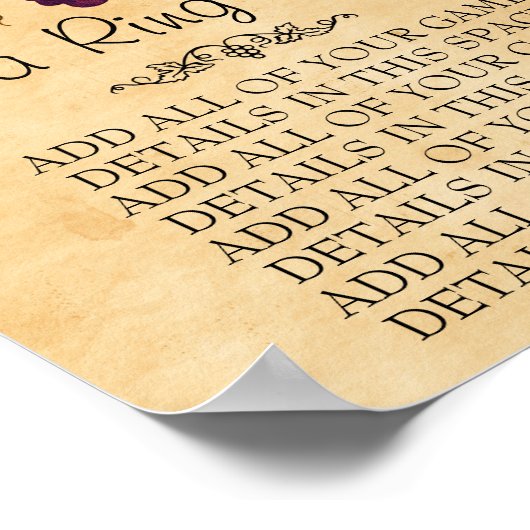 a Ring
ADD ALL OF YOUR GAM
DETAILS IN THIS SPAC
ADD ALL OF YOUR
DETAILS IN THIS
ADD ALL OF Y
DETAILS IN
ADD ALL
DETAILS